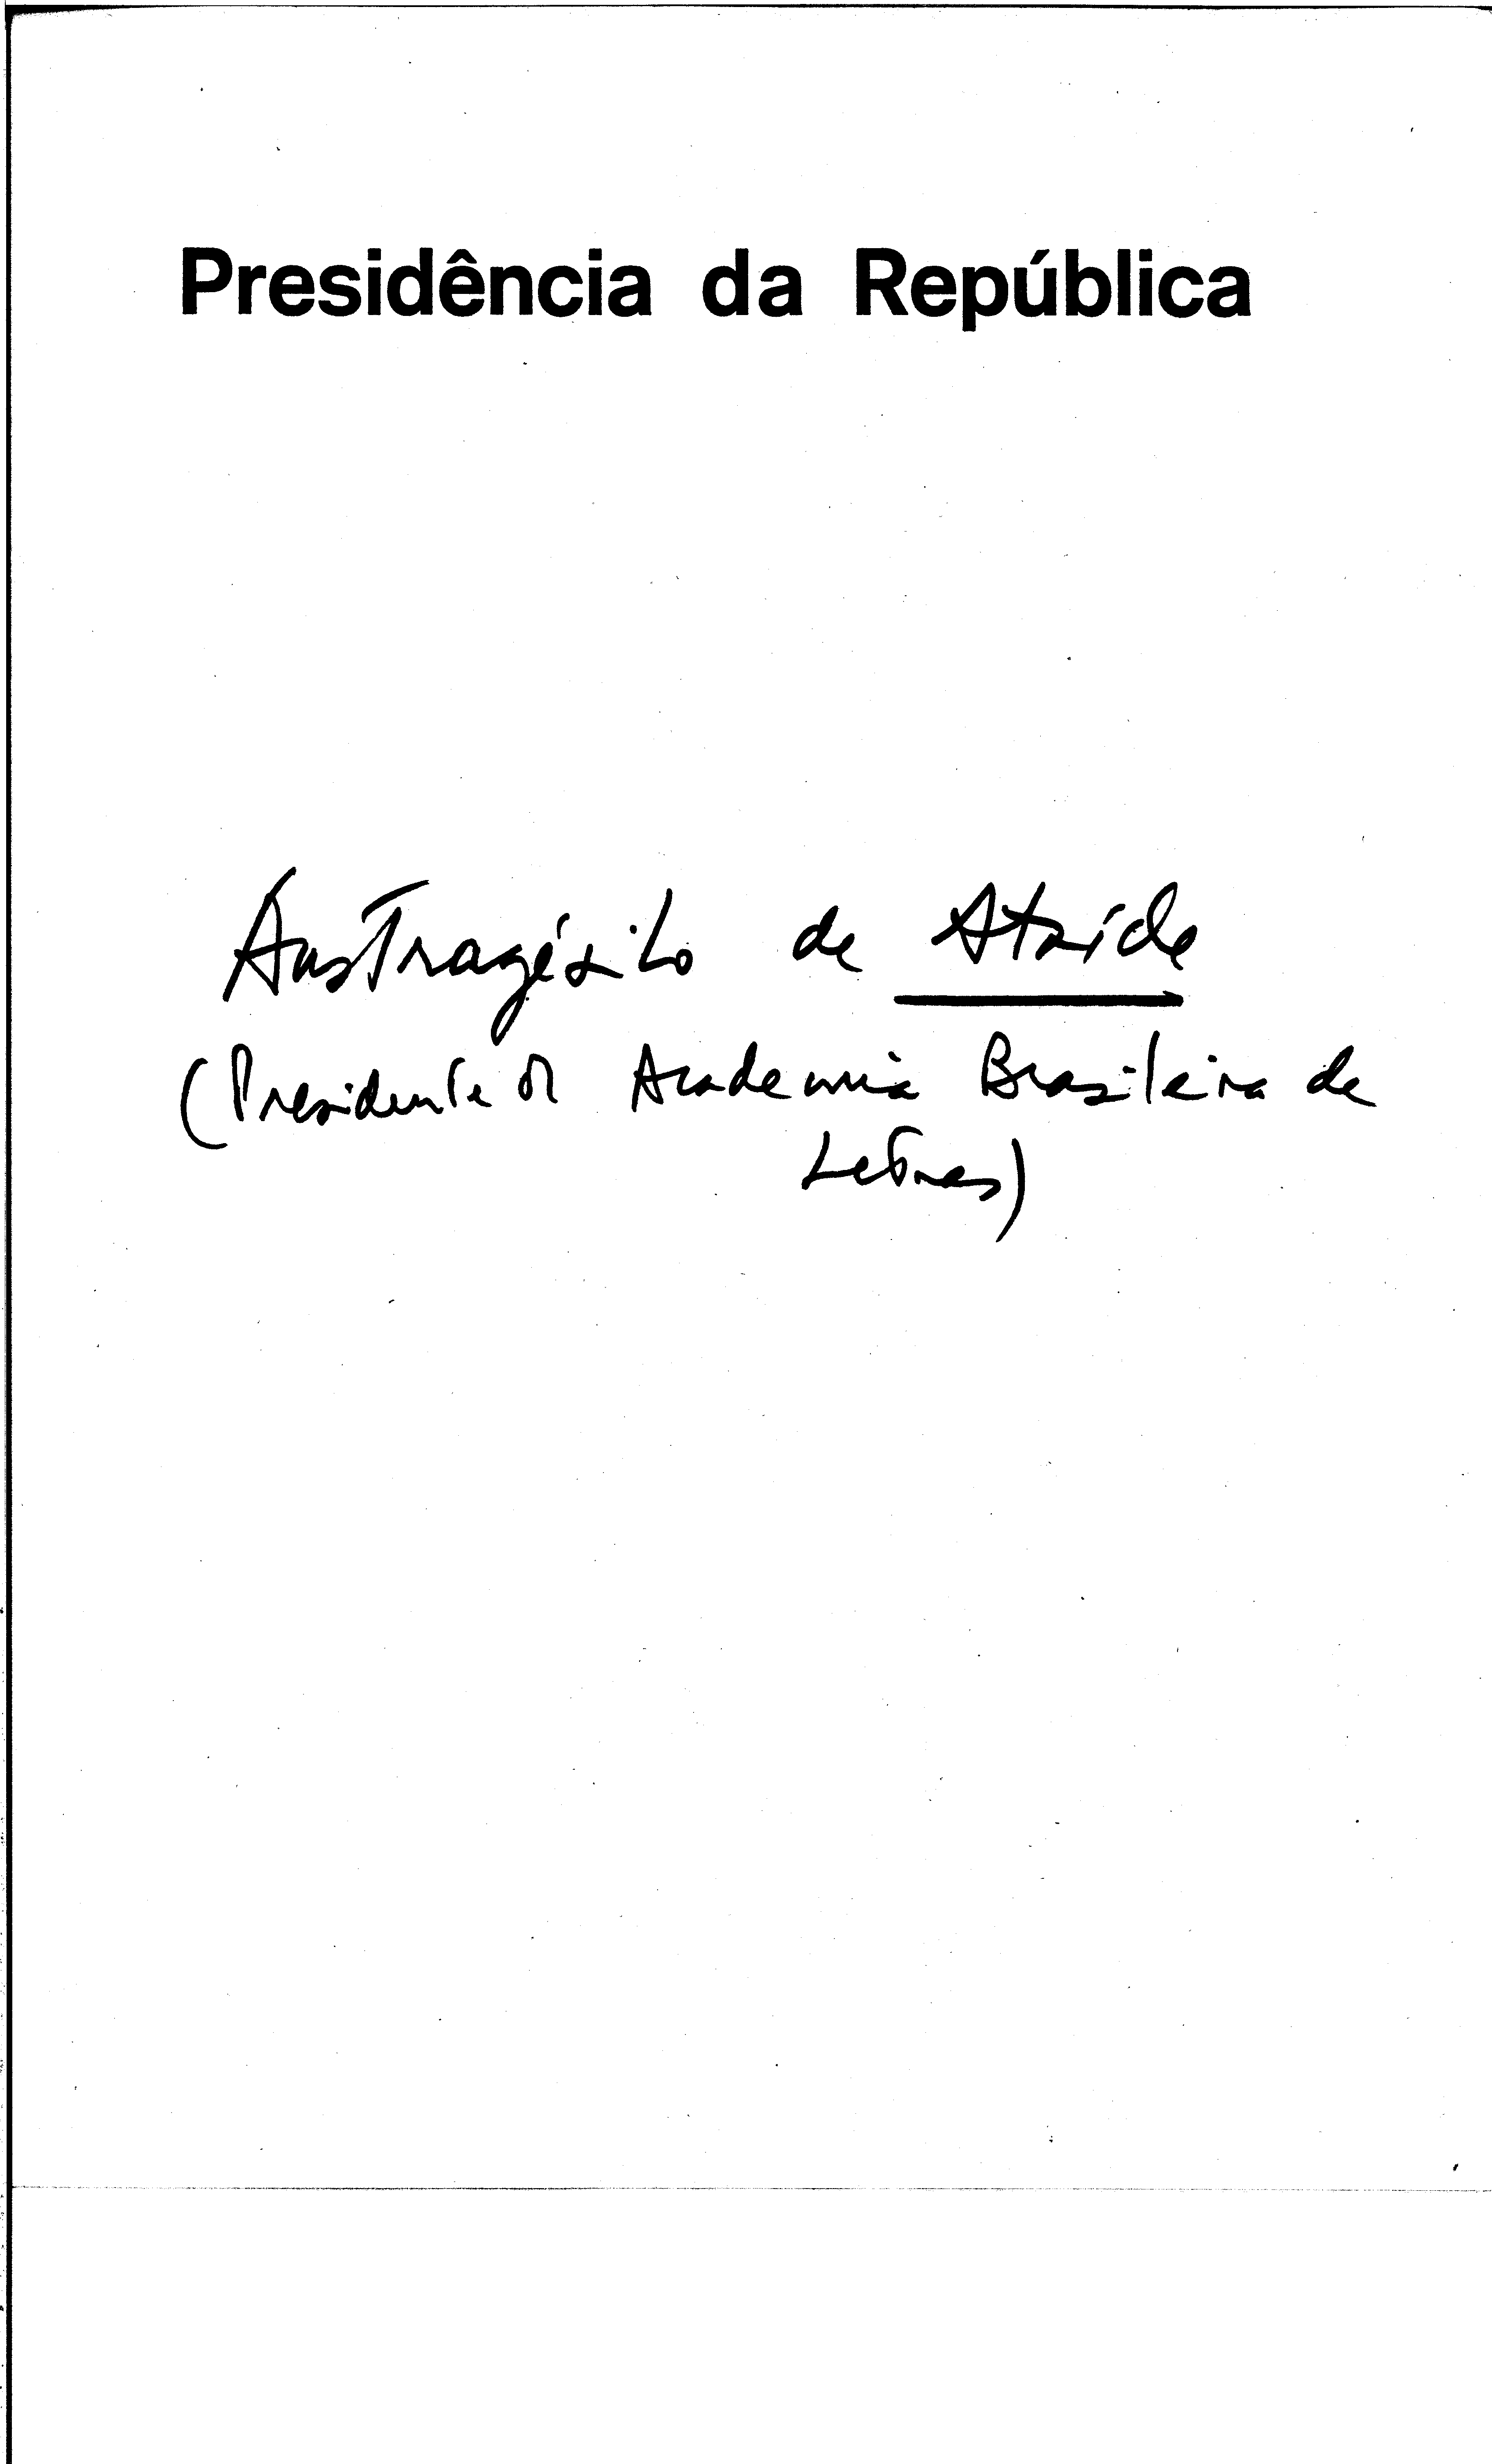 Presidência da República
Austragésilo de Ataíde
(Presidente da Academia Brasileira de
Letras)